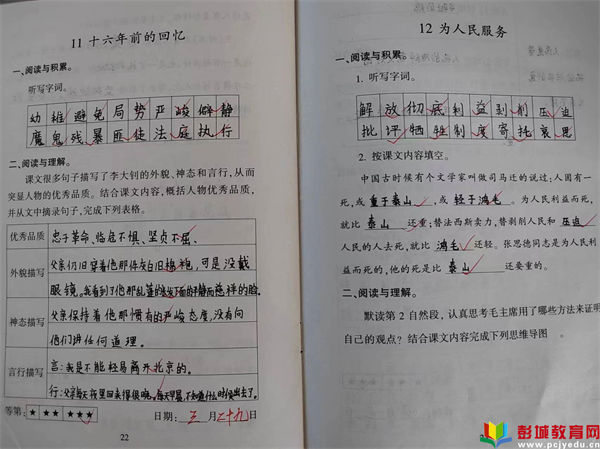 11 十六年前的回忆
一、阅读与积累。
听写字词。
幼稚避免局势严峻僻静
魔鬼残暴匪徒法庭执行
二、阅读与理解。
课文很多句子描写了李大钊的外貌、神态和言行,从而
突显人物的优秀品质。结合课文内容,概括人物优秀品质,
并从文中摘录句子,完成下列表格。
优秀品质 忠于革命、临危不惧、坚贞不屈、
外貌描写 父亲仍旧穿着他那件灰白旧棉袍,可是没戴
眼镜。我看到了他那乱蓬的长发下面的平静而慈祥的脸。
神态描写 父亲保持着他那惯有的严峻态度,没有向
他们讲任何道理。
言行描写 言:我是不能轻易离开北京的。
行:父亲每天夜里回来得很晚。每天早晨,不知道什么时候出去了。
等第: ★★★★★ 日期: 三 月 二十九 日
22
12 为人民服务
一、阅读与积累。
1. 听写字词。
解放彻底利益剥削压迫
批评牺牲制度寄托哀思
2. 按课文内容填空。
中国古时候有个文学家叫做司马迁的说过:人固有一
死,或 重于泰山 ,或 轻于鸿毛 。为人民利益而死,
就比 泰山 还重;替法西斯卖力,替剥削人民和 压迫
人民的人去死,就比 鸿毛 还轻。张思德同志是为人民利
益而死的,他的死是比 泰山 还要重的。
二、阅读与理解。
默读第 2 自然段,认真思考毛主席用了哪些方法来证明
自己的观点?结合课文内容完成下列思维导图。
彭城教育网
www.pcjyedu.com